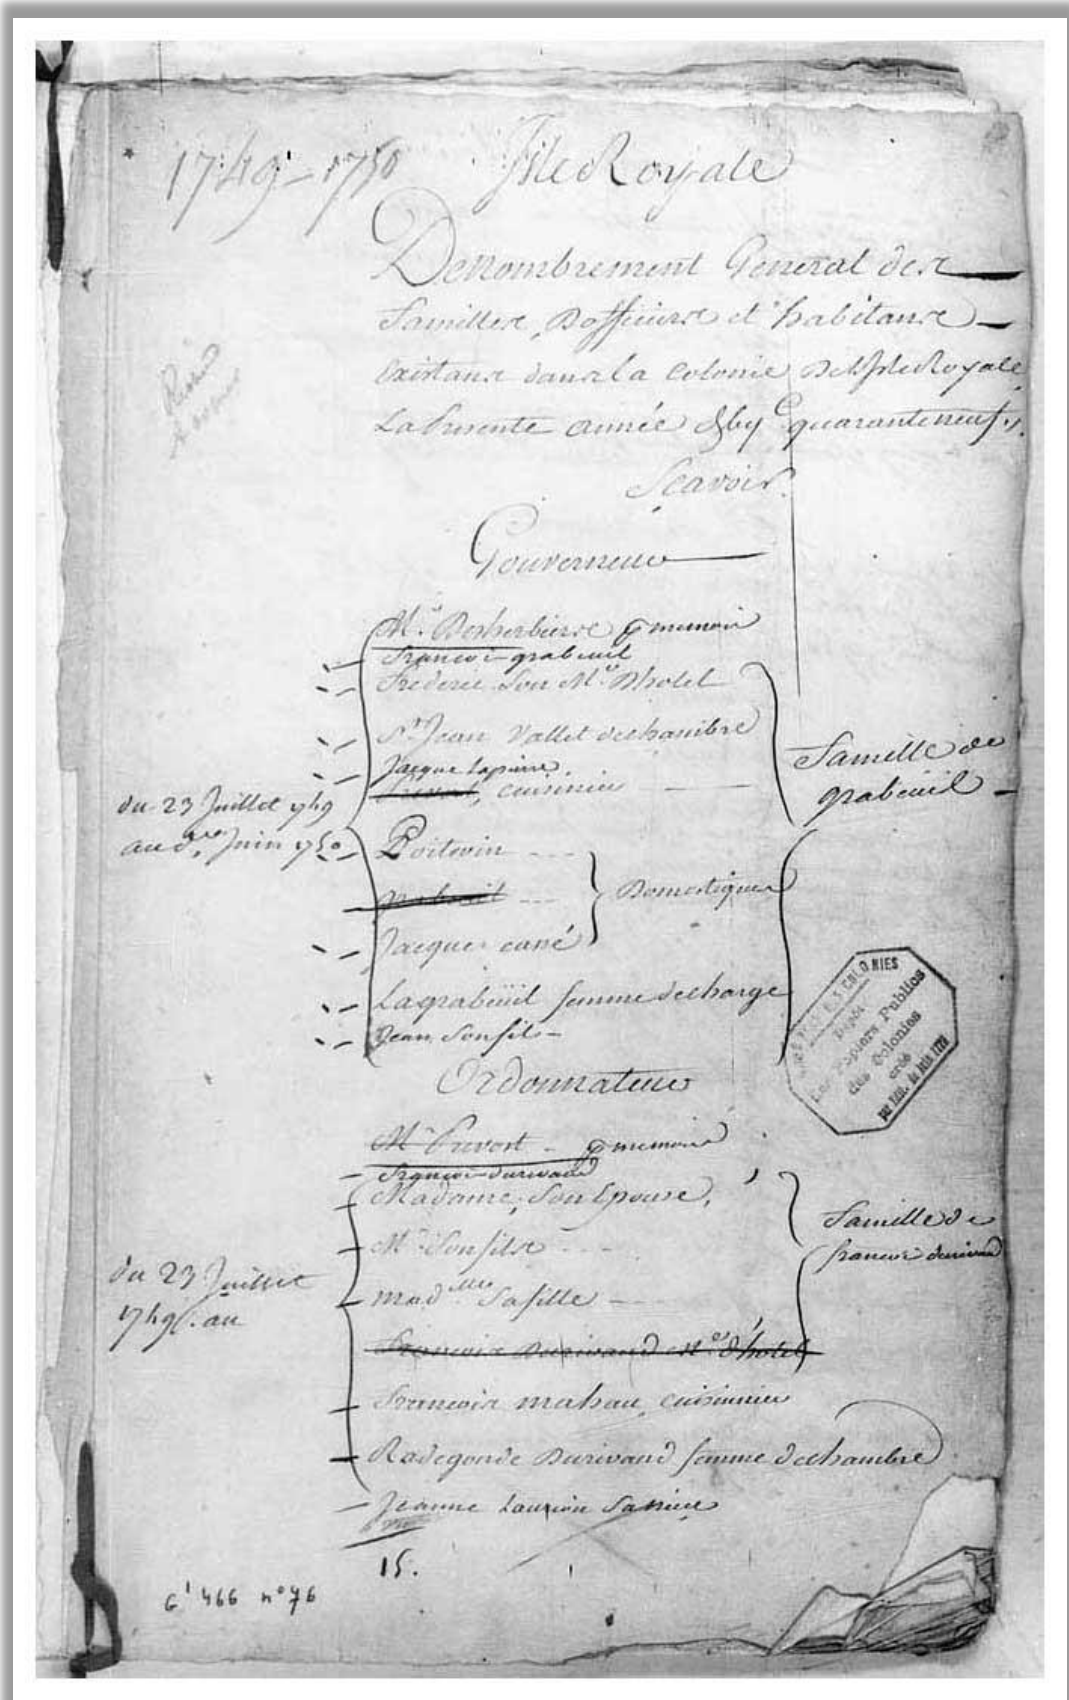 1749 - 1750
Isle Royale
Denombrement General des
familles, Dofficiers et habitans
Existans dans la Colonie De L'Isle Royale
La Presente année quarante neuf
Sçavoir.
Gouverneur
Mr. Desherbiers memoir
francois grabeuil
Frederic Son Me Dhotel
St Jean Vallet de chambre
Jacque lapierre
Prevot, cuisinier
famille de
grabeuil
du 23 Juillet 1749
au Juin 1750
Poitevin
Domestiques
Jacques cané
La grabeüil femme de charge
Jean Son fils
DES COLONIES
Dépôt
Des Papiers Publics
des Colonies
créé
par Edit. de Juin 1776
Ordonnateur
Mr Prevost memoire
francois durivaud
Madame, Son Epouse,
Mr Son fils
famille de
francois durivaud
du 23 Juillet
1749. au
Madlle Sa fille
Francois Durivaud Me d'hotel
Francois mahau, cuisinier
Radegonde Durivaud femme de chambre
Jeanne Sa niece
15.
G1 466 n° 76